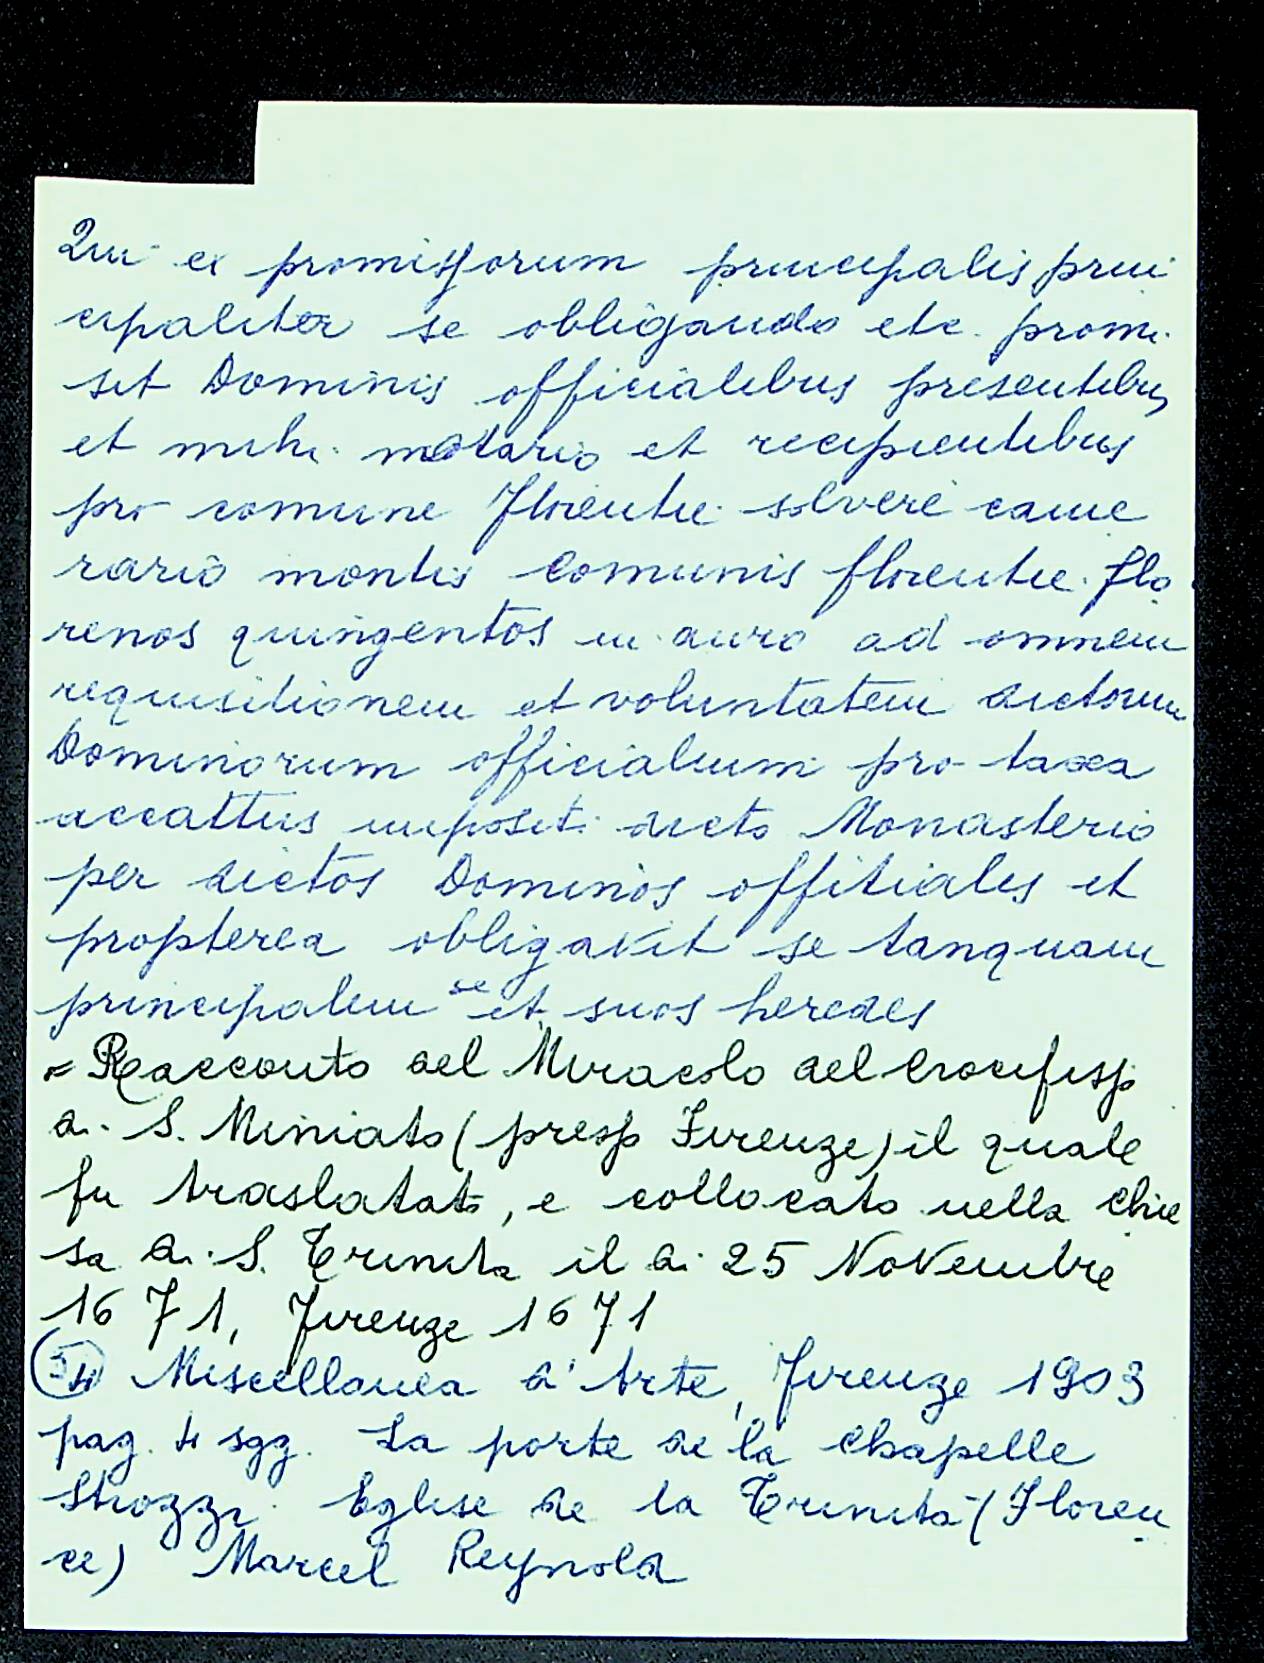 Qui ex promissorum principalis prin
cipaliter se obligando etc. promi
sit Dominis officialibus presentibus
et mihi notario et recipientibus
pro comune Florentie solvere came
rario montis Comunis florentie flo
renos quingentos in auro ad omnem
requisitionem et voluntatem dictorum
Dominorum officialium pro taxa
accattus impositi dicto Monasterio
per dictos Dominos offitiales et
propterea obligavit se tanquam
principalem se et suos heredes
= Racconto del Miracolo del Crocifisso
di S. Miniato (presso Firenze) il quale
fu traslatato, e collocato nella Chie
sa di S. Trinita il di 25 Novembre
1671, Firenze 1671
Miscellanea d'Arte, Firenze 1903
pag. 4 sgg. La porte de la Chapelle
Strozzi. Eglise de la Trinità (Floren
ce) Marcel Reynold